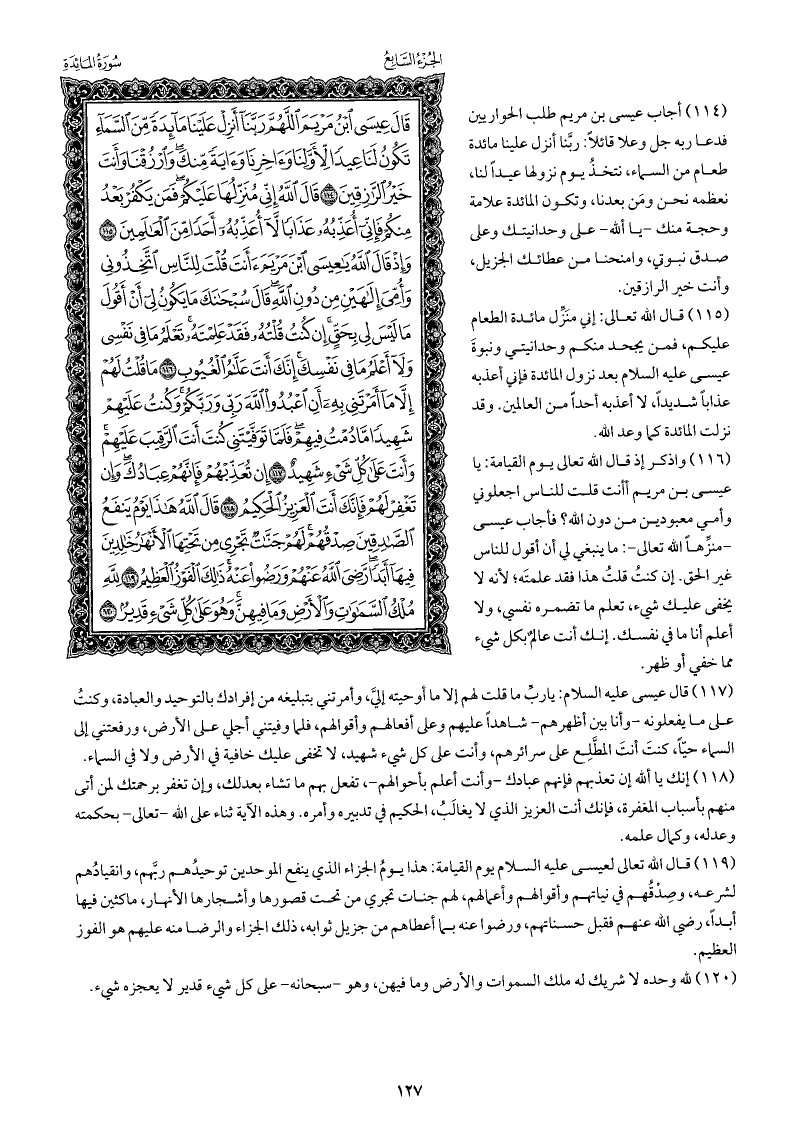 الجزء السابع
سورة المائدة
(١١٤) أجاب عيسى بن مريم طلب الحواريين
فدعا ربه جل وعلا قائلاً: ربَّنا أنزل علينا مائدة
طعام من السماء، نتخذُ يوم نزولها عيداً لنا،
نعظمه نحن ومَن بعدنا، وتكون المائدة علامة
وحجة منك -يا الله- على وحدانيتك وعلى
صدق نبوتي، وامنحنا من عطائك الجزيل،
وأنت خير الرازقين.
(١١٥) قال الله تعالى: إني منَزِّل مائدة الطعام
عليكم، فمن يجحد منكم وحدانيتي ونبوةَ
عيسى عليه السلام بعد نزول المائدة فإني أعذبه
عذاباً شديداً، لا أعذبه أحداً من العالمين. وقد
نزلت المائدة كما وعد الله.
(١١٦) واذكر إذ قال الله تعالى يوم القيامة: يا
عيسى بن مريم أأنت قلت للناس اجعلوني
وأمي معبودين من دون الله؟ فأجاب عيسى
-منزِّهاً الله تعالى-: ما ينبغي لي أن أقول للناس
غير الحق. إن كنتُ قلتُ هذا فقد علمتَه؛ لأنه لا
يخفى عليك شيء، تعلم ما تضمره نفسي، ولا
أعلم أنا ما في نفسك. إنك أنت عالمٌ بكل شيء
مما خفي أو ظهر.
قَالَ عِيسَى ٱبْنُ مَرْيَمَ ٱللَّهُمَّ رَبَّنَآ أَنزِلْ عَلَيْنَا مَآئِدَةً مِّنَ ٱلسَّمَآءِ
تَكُونُ لَنَا عِيدًا لِّأَوَّلِنَا وَءَاخِرِنَا وَءَايَةً مِّنكَ ۖ وَٱرْزُقْنَا وَأَنتَ
خَيْرُ ٱلرَّٰزِقِينَ ١١٤ قَالَ ٱللَّهُ إِنِّي مُنَزِّلُهَا عَلَيْكُمْ ۖ فَمَن يَكْفُرْ بَعْدُ
مِنكُمْ فَإِنِّيٓ أُعَذِّبُهُۥ عَذَابًا لَّآ أُعَذِّبُهُۥٓ أَحَدًا مِّنَ ٱلْعَٰلَمِينَ ١١٥
وَإِذْ قَالَ ٱللَّهُ يَٰعِيسَى ٱبْنَ مَرْيَمَ ءَأَنتَ قُلْتَ لِلنَّاسِ ٱتَّخِذُونِي
وَأُمِّيَ إِلَٰهَيْنِ مِن دُونِ ٱللَّهِ ۖ قَالَ سُبْحَٰنَكَ مَا يَكُونُ لِيٓ أَنْ أَقُولَ
مَا لَيْسَ لِي بِحَقٍّ ۚ إِن كُنتُ قُلْتُهُۥ فَقَدْ عَلِمْتَهُۥ ۚ تَعْلَمُ مَا فِي نَفْسِي
وَلَآ أَعْلَمُ مَا فِي نَفْسِكَ ۚ إِنَّكَ أَنتَ عَلَّٰمُ ٱلْغُيُوبِ ١١٦ مَا قُلْتُ لَهُمْ
إِلَّا مَآ أَمَرْتَنِي بِهِۦٓ أَنِ ٱعْبُدُواْ ٱللَّهَ رَبِّي وَرَبَّكُمْ ۚ وَكُنتُ عَلَيْهِمْ
شَهِيدًا مَّا دُمْتُ فِيهِمْ ۖ فَلَمَّا تَوَفَّيْتَنِي كُنتَ أَنتَ ٱلرَّقِيبَ عَلَيْهِمْ ۚ
وَأَنتَ عَلَىٰ كُلِّ شَيْءٍ شَهِيدٌ ١١٧ إِن تُعَذِّبْهُمْ فَإِنَّهُمْ عِبَادُكَ ۖ وَإِن
تَغْفِرْ لَهُمْ فَإِنَّكَ أَنتَ ٱلْعَزِيزُ ٱلْحَكِيمُ ١١٨ قَالَ ٱللَّهُ هَٰذَا يَوْمُ يَنفَعُ
ٱلصَّٰدِقِينَ صِدْقُهُمْ ۚ لَهُمْ جَنَّٰتٌ تَجْرِي مِن تَحْتِهَا ٱلْأَنْهَٰرُ خَٰلِدِينَ
فِيهَآ أَبَدًا ۚ رَّضِيَ ٱللَّهُ عَنْهُمْ وَرَضُواْ عَنْهُ ۚ ذَٰلِكَ ٱلْفَوْزُ ٱلْعَظِيمُ ١١٩ لِلَّهِ
مُلْكُ ٱلسَّمَٰوَٰتِ وَٱلْأَرْضِ وَمَا فِيهِنَّ ۚ وَهُوَ عَلَىٰ كُلِّ شَيْءٍ قَدِيرٌ ١٢٠
(١١٧) قال عيسى عليه السلام: ياربِّ ما قلت لهم إلا ما أوحيته إليَّ، وأمرتني بتبليغه من إفرادك بالتوحيد والعبادة، وكنتُ
على ما يفعلونه -وأنا بين أظهرهم- شاهداً عليهم وعلى أفعالهم وأقوالهم، فلما وفيتني أجلي على الأرض، ورفعتني إلى
السماء حيّاً، كنتَ أنتَ المطَّلِع على سرائرهم، وأنت على كل شيء شهيد، لا تخفى عليك خافية في الأرض ولا في السماء.
(١١٨) إنك يا ألله إن تعذبهم فإنهم عبادك -وأنت أعلم بأحوالهم-، تفعل بهم ما تشاء بعدلك، وإن تغفر برحمتك لمن أتى
منهم بأسباب المغفرة، فإنك أنت العزيز الذي لا يغالَبُ، الحكيم في تدبيره وأمره. وهذه الآية ثناء على الله -تعالى- بحكمته
وعدله، وكمال علمه.
(١١٩) قال الله تعالى لعيسى عليه السلام يوم القيامة: هذا يومُ الجزاء الذي ينفع الموحدين توحيدُهم ربَّهم، وانقيادُهم
لشرعه، وصِدْقُهم في نياتهم وأقوالهم وأعمالهم، لهم جنات تجري من تحت قصورها وأشجارها الأنهار، ماكثين فيها
أبداً، رضي الله عنهم فقبل حسناتهم، ورضوا عنه بما أعطاهم من جزيل ثوابه، ذلك الجزاء والرضا منه عليهم هو الفوز
العظيم.
(١٢٠) لله وحده لا شريك له ملك السموات والأرض وما فيهن، وهو -سبحانه- على كل شيء قدير لا يعجزه شيء.
١٢٧